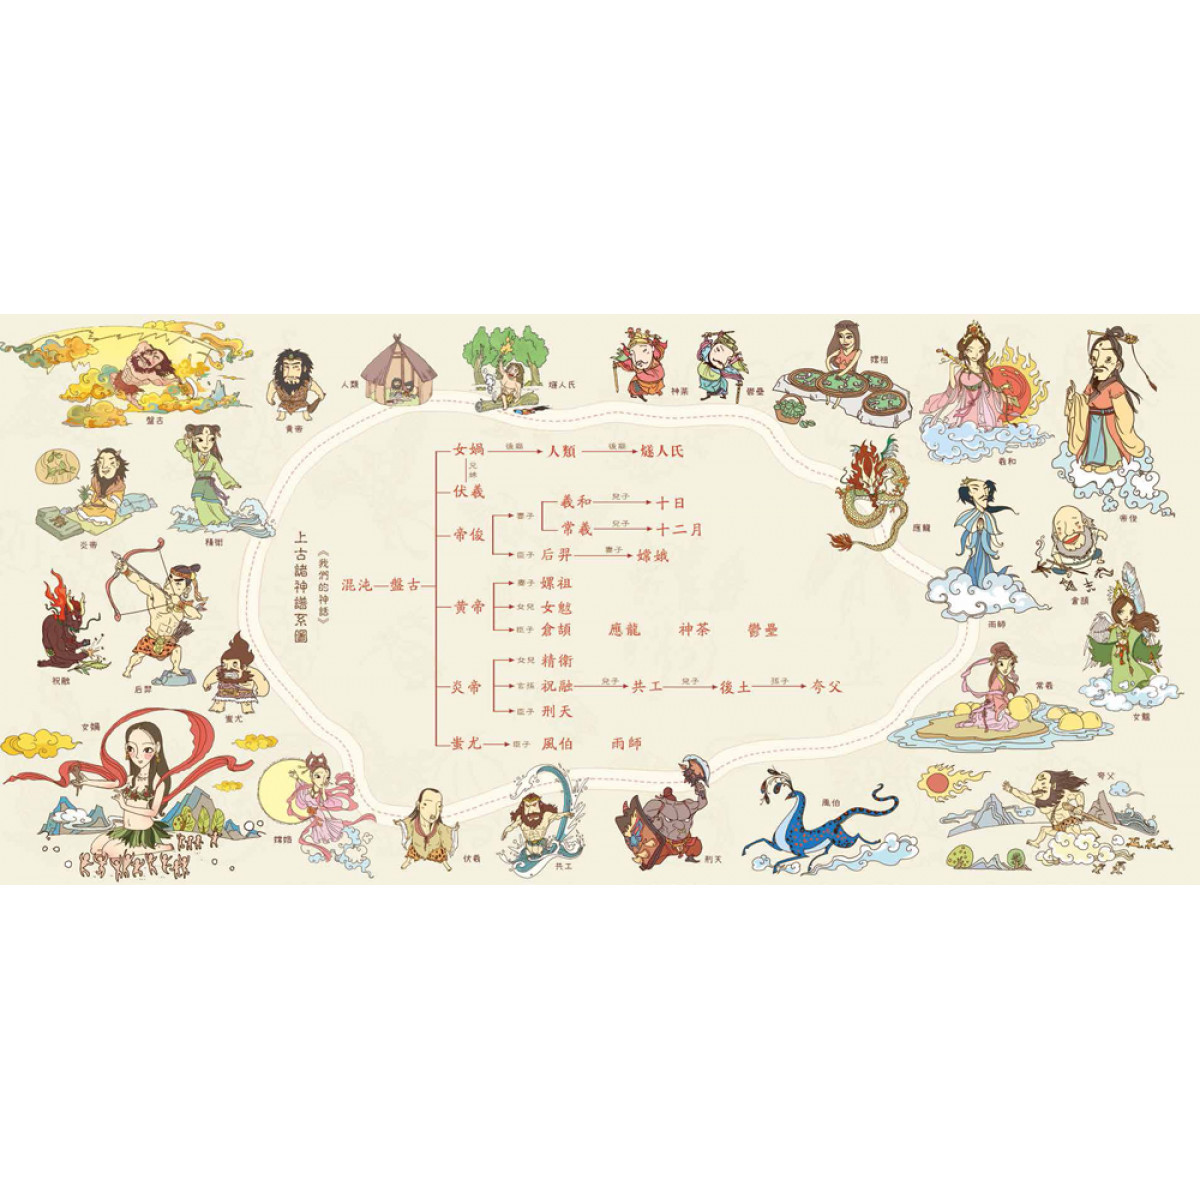 盤古
黃帝
人類
燧人氏
神荼
鬱壘
嫘祖
羲和
帝俊
炎帝
精衛
應龍
雨師
倉頡
祝融
后羿
蚩尤
常羲
女魃
女媧
嫦娥
伏羲
共工
刑天
風伯
夸父
上古諸神譜系圖
《我們的神話》
混沌 盤古
女媧 後裔 人類 後裔 燧人氏
兄妹
伏羲
帝俊 妻子 羲和 兒子 十日
常羲 兒子 十二月
臣子 后羿 妻子 嫦娥
黃帝 妻子 嫘祖
女兒 女魃
臣子 倉頡 應龍 神荼 鬱壘
炎帝 女兒 精衛
玄孫 祝融 兒子 共工 兒子 後土 孫子 夸父
臣子 刑天
蚩尤 臣子 風伯 雨師